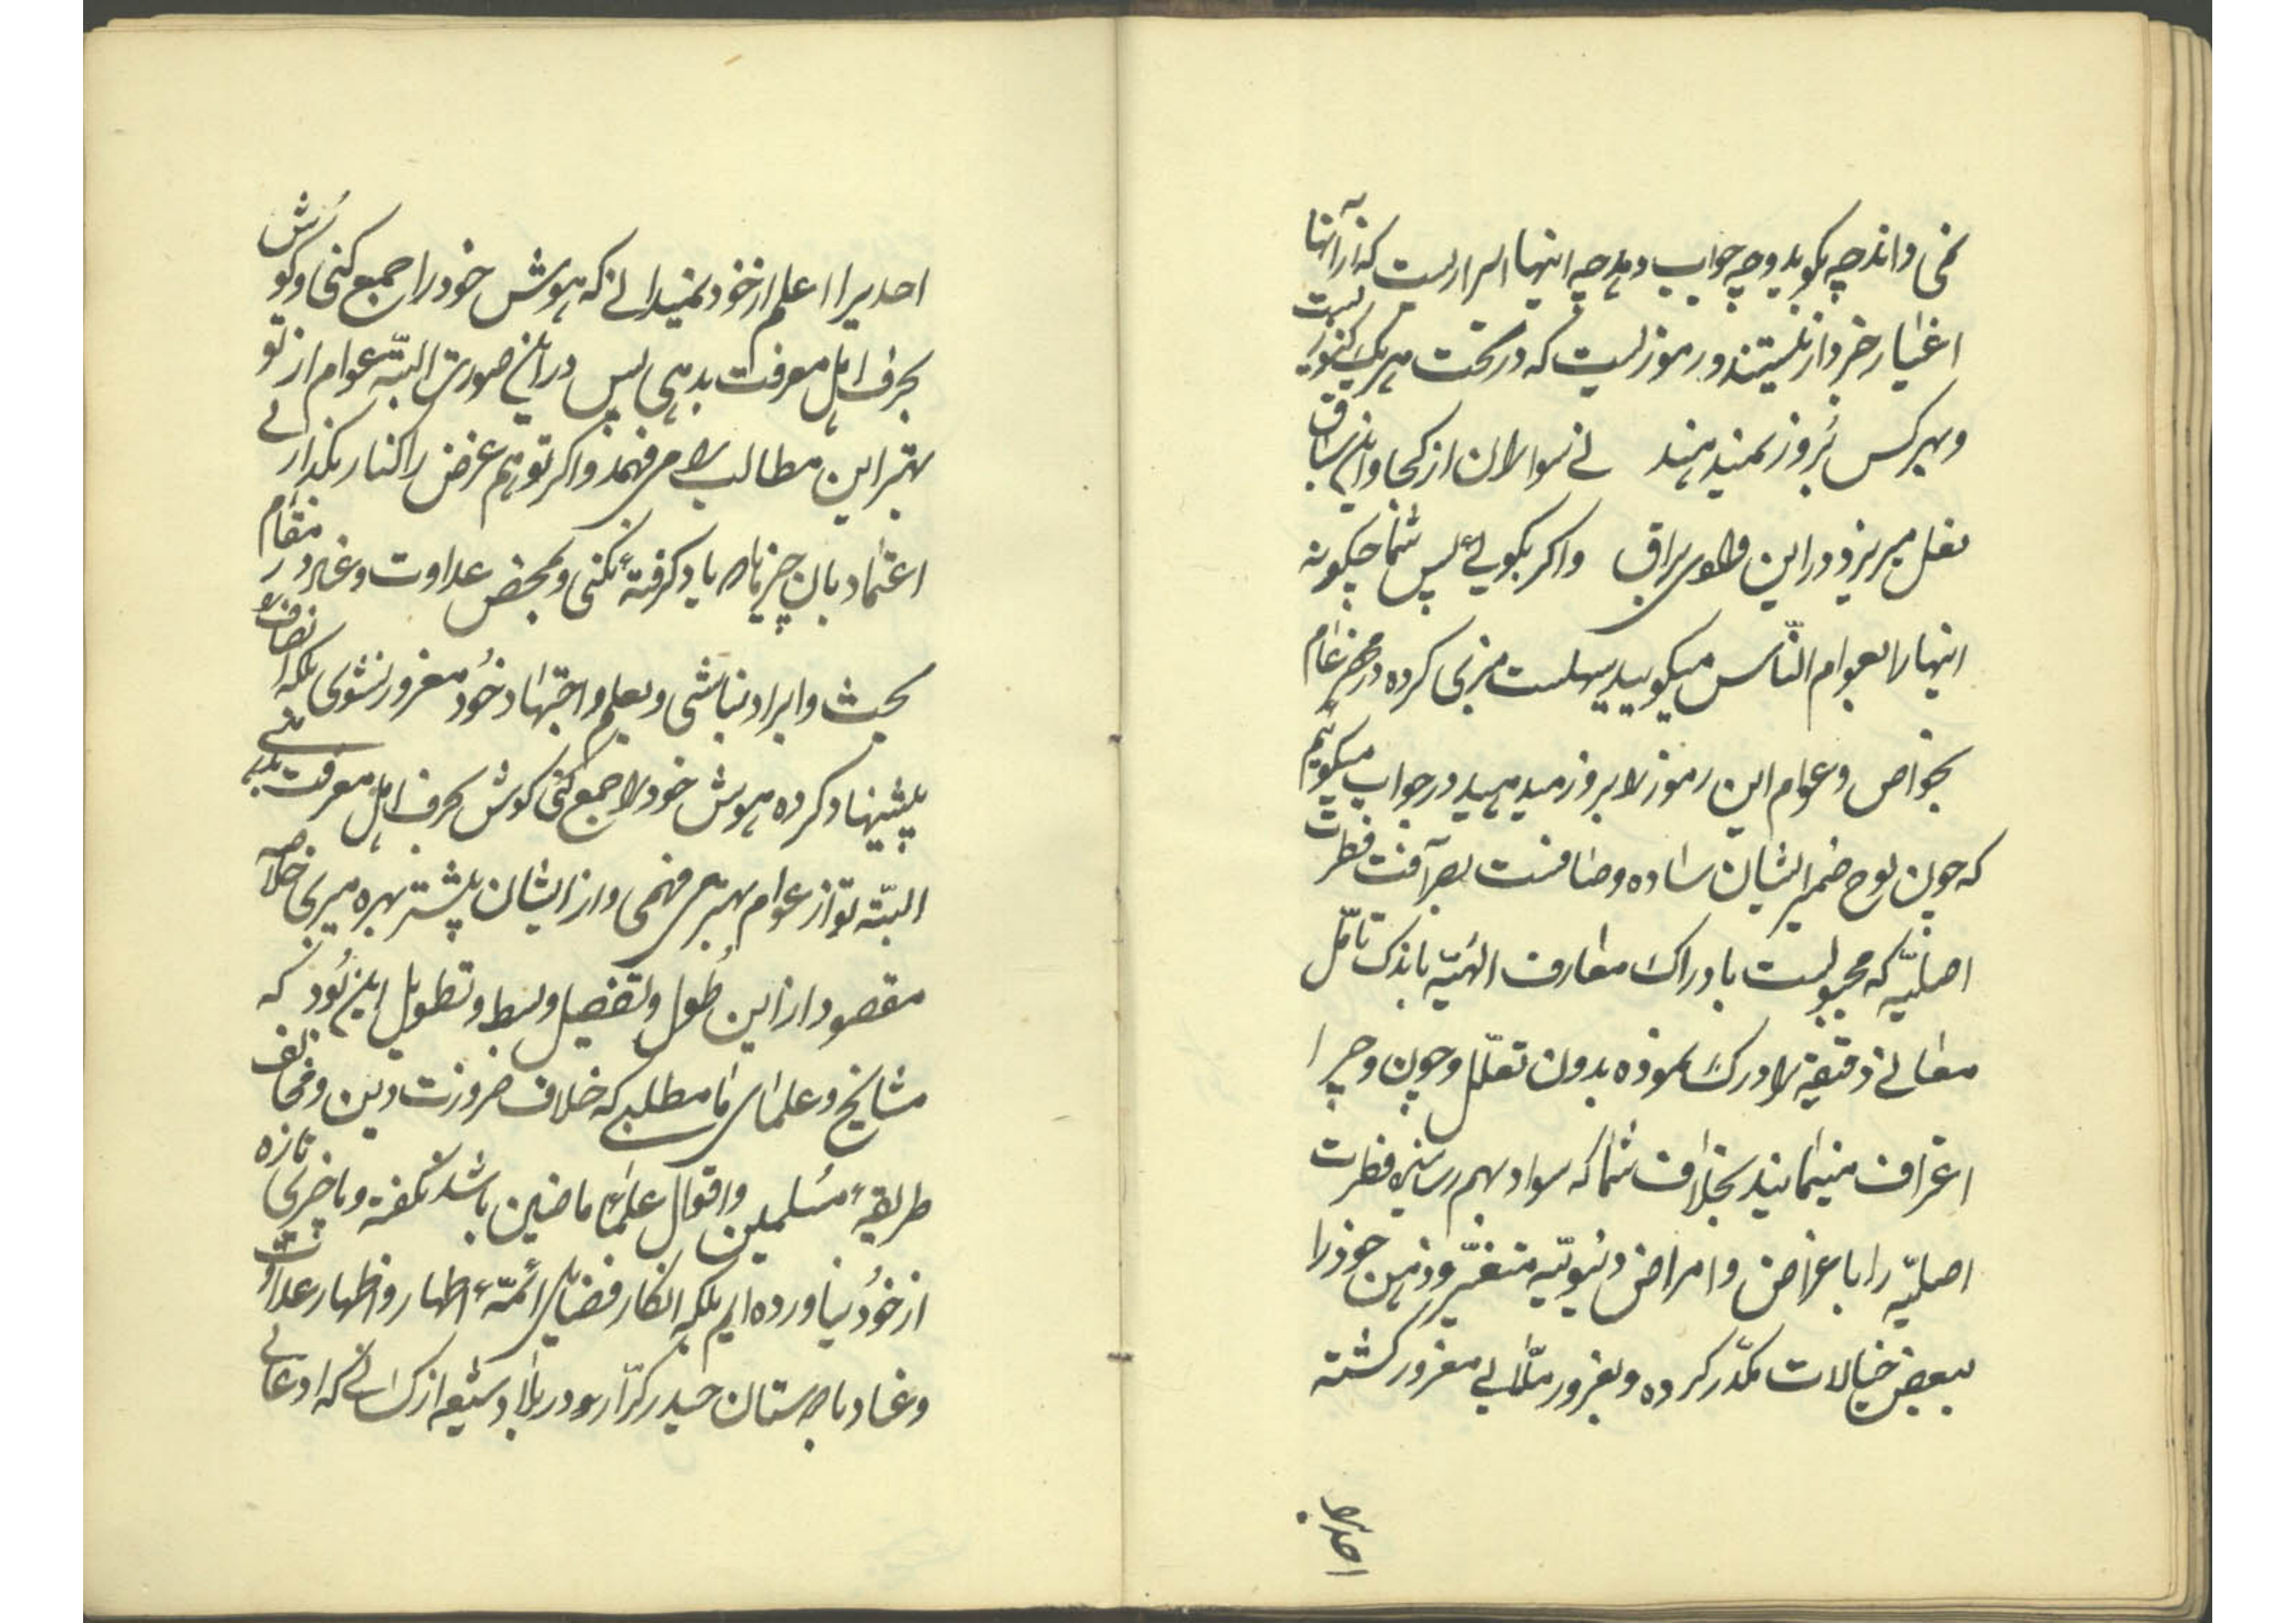 نمی داند چه بکوید و چه جواب دهد چه اینها اسراریست که از آنها
اغیار خبردار نیستند و رموزیست که در تحت هریک کنوزیست
و بهرکس بروز نمیدهند نی سوالان از کجا و این سیاق
نقل میریزد در این طاق واکر بکویی پس شما چکونه
اینها را بعوام النّاس میکویید پیهلست میزنی کرده در محضر عام
بخواص و عوام این رموز را بروز میدهید در جواب میکوییم
که چون لوح ضمیر ایشان ساده و صافست بصرآفت فطرت
اصلیّه که مجبولست بادراک معارف الهیّه باندک تامّل
معانی دقیقه را درک نموده بدون تعلّل و چون و چرا
اعتراف مینمایند بخلاف شما که سواد بهم رسانیده فطرت
اصلیّه را باغراض و امراض دنیویّه متغیّر و ذهن خود را
ببعض خیالات مکدّر کرده و بغرور ملّایی مغرور کشته
احدیرا
احدیرا اعلم از خود نمیدانی که هوش خود را جمع کنی و کوش
بحرف اهل معرفت بدهی پس در این صورت البتّه عوام از تو
بهتر این مطالب را می فهمند واکر تو هم غرض را کنار بکذاری
اعتماد بان چیزها که یاد کرفتهٴ نکنی و بمحض عداوت و عناد در مقام
بحث و ایراد نباشی و بعلم و اجتهاد خود مغرور نشوی بلکه انصاف را
پیشنهاد کرده هوش خود را جمع کنی کوش بحرف اهل معرفت بدهی
البتّه تو از عوام بهتر می فهمی و از ایشان بیشتر بهره میبری خلاصه
مقصود از این طول و تفصیل و بسط و تطویل این بود که
مشایخ و علمای ما مطلبی که خلاف ضرورت دین و مخالف
طریقهٴ مسلمین و اقوال علمای ماضین باشد نکفته و ما چیزی تازه
از خود نیاورده ایم بلکه انکار فضایل ائمّهٴ اطهار و اظهار عداوت
و عناد با دوستان حیدر کرّار در بلاد شیعه از کسانی که ادعای